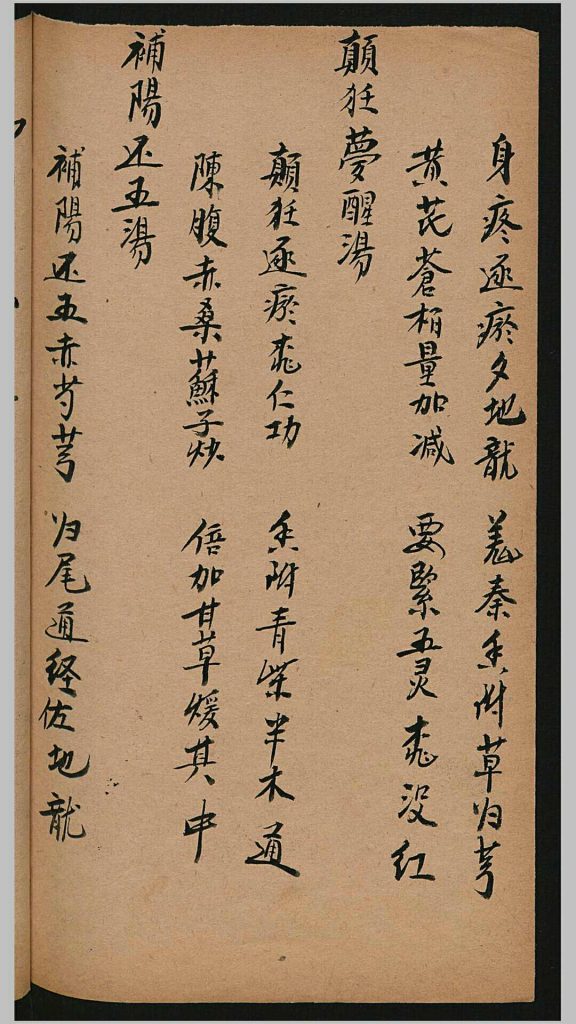 身疼逐瘀夕地龍 羌秦香附草归芎
黄芪蒼栢量加减 要緊五灵桃没红
顛狂夢醒湯
顛狂逐瘀桃仁功 香附青柴半木通
陳腹赤桑蘇子炒 倍加甘草煖其中
補陽还五湯
補陽还五赤芍芎 归尾通经佐地龍